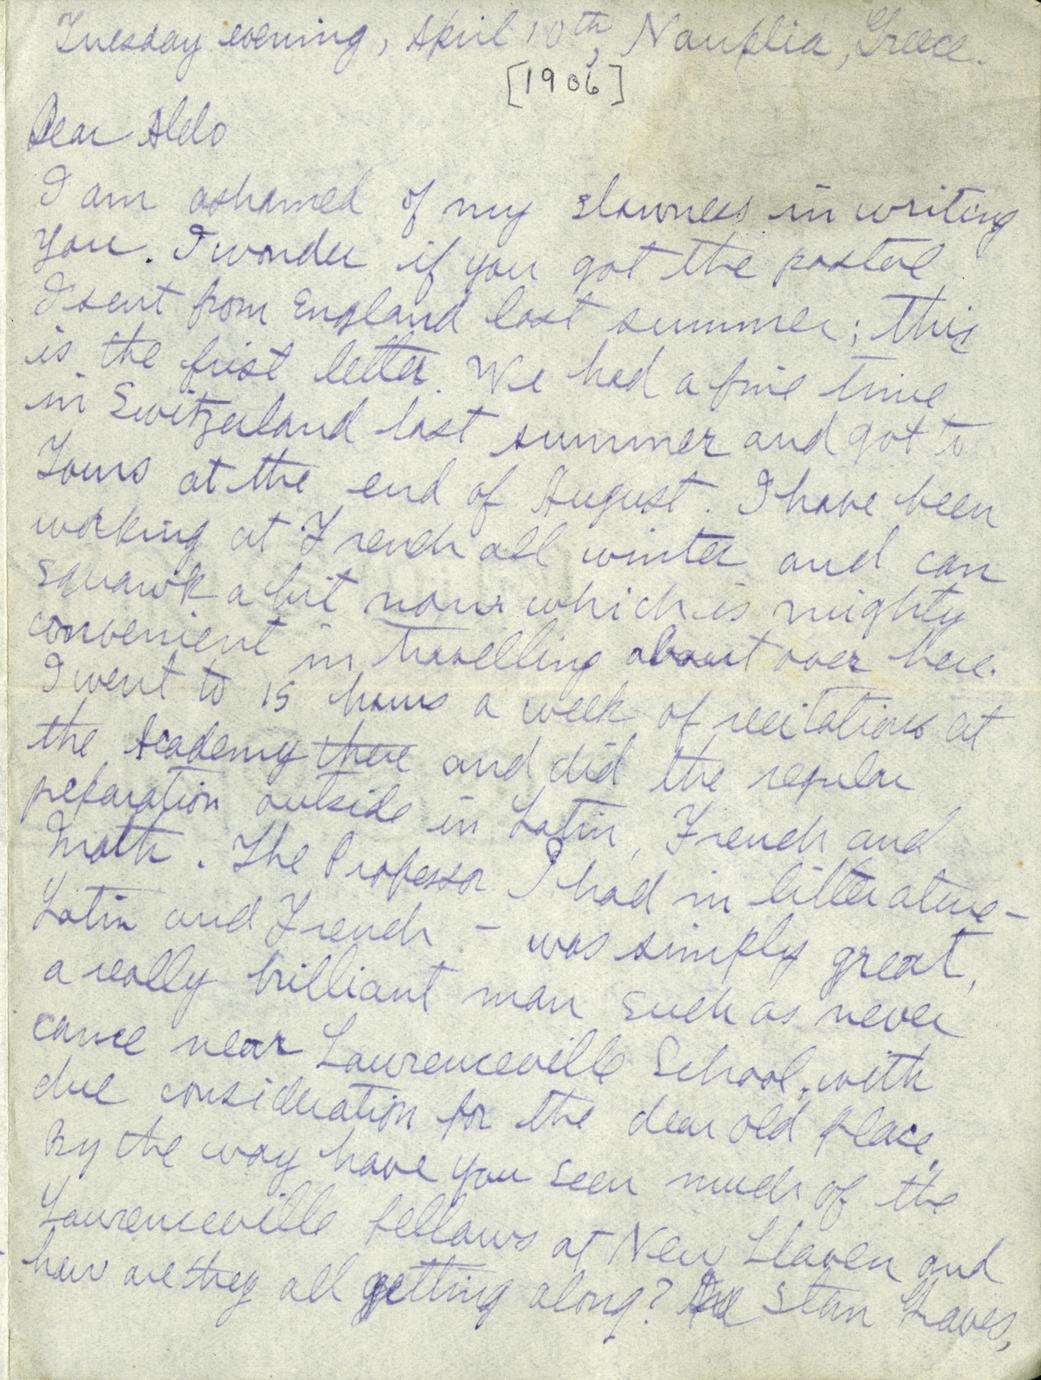 Tuesday evening, April 10th, Nauplia, Greece.
[1906]
Dear Aldo
I am ashamed of my slowness in writing
you. I wonder if you got the postal
I sent from England last summer; this
is the first letter. We had a fine time
in Switzerland last summer and got to
Tours at the end of August. I have been
working at French all winter and can
squawk a bit now which is mighty
convenient in travelling about over here.
I went to 15 hours a week of recitations at
the Academy there and did the regular
preparation outside in Latin, French and
Math. The Professor I had in litterature -
Latin and French - was simply great,
a really brilliant man such as never
came near Lawrenceville School, with
due consideration for the dear old place.
By the way have you seen much of the
Lawrenceville fellows at New Haven and
how are they all getting along? Stan